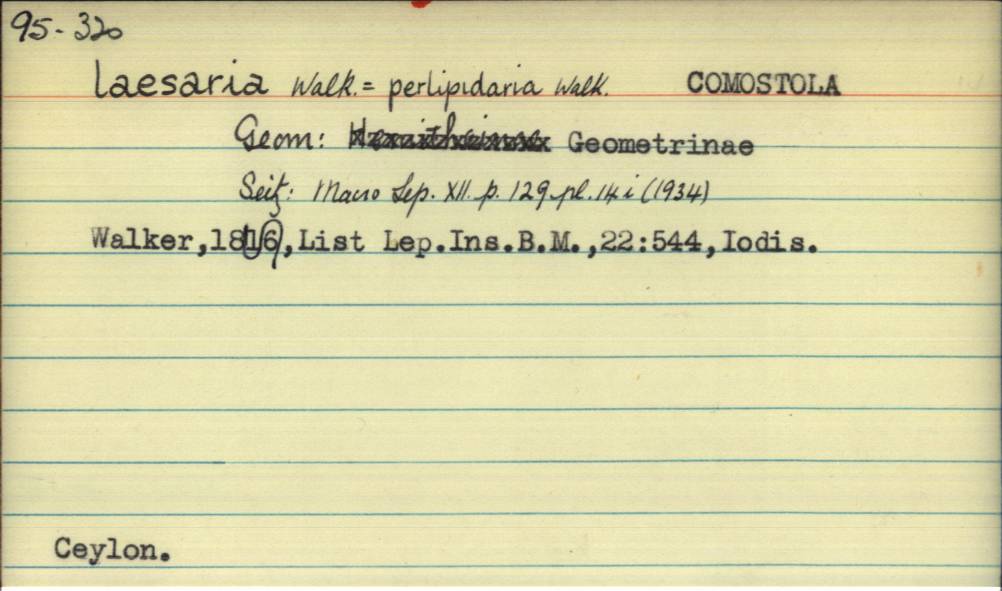 95-320
laesaria Walk. = perlipidaria Walk. COMOSTOLA
Geom: Geometrinae
Seitz: Macro Lep. XII. p. 129. pl. 14 i (1934)
Walker,1816,List Lep.Ins.B.M.,22:544,Iodis.
Ceylon.